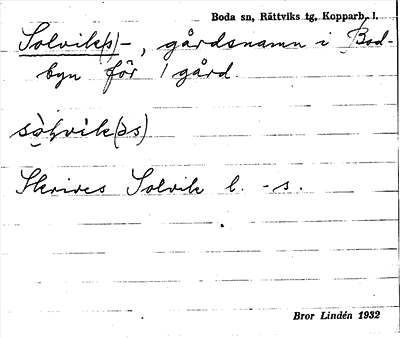 Boda sn, Rättviks tg, Kopparb. l.
Solvik(s)-, gårdsnamn i Bod-
byn för 1 gård.
Skrives Solvik l. -s.
Bror Lindén 1932